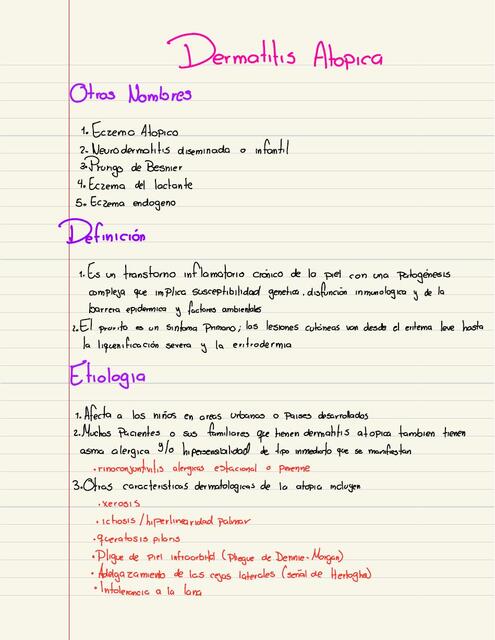 Dermatitis Atopica
Otros Nombres
1. Eczema Atopico
2. Neurodermatitis diseminada o infantil
3. Prurigo de Besnier
4. Eczema del lactante
5. Eczema endogeno
Definición
1. Es un transtorno inflamatorio crónico de la piel con una patogénesis
compleja que implica susceptibilidad genetica, disfunción inmunologica y de la
barrera epidermica y factores ambientales
2. El prurito es un sintoma Primario; las lesiones cutáneas van desde el eritema leve hasta
la liquenificación severa y la eritrodermia
Etiologia
1. Afecta a los niños en areas urbanas o Paises desarrollados
2. Muchos Pacientes o sus familiares que tienen dermatitis atopica tambien tienen
asma alergica y/o hipersensibilidad de tipo inmediato que se manifiestan
• rinoconjuntivitis alergicas estacional o perenne
3. Otras caracteristicas dermatologicas de la atopia incluyen
• xerosis
• ictiosis / hiperlinearidad palmar
• queratosis pilaris
• Pligue de Piel infraorbital (Pliegue de Dennie-Morgan)
• Adelgazamiento de las cejas laterales (señal de Hertoghe)
• Intolerancia a la lana